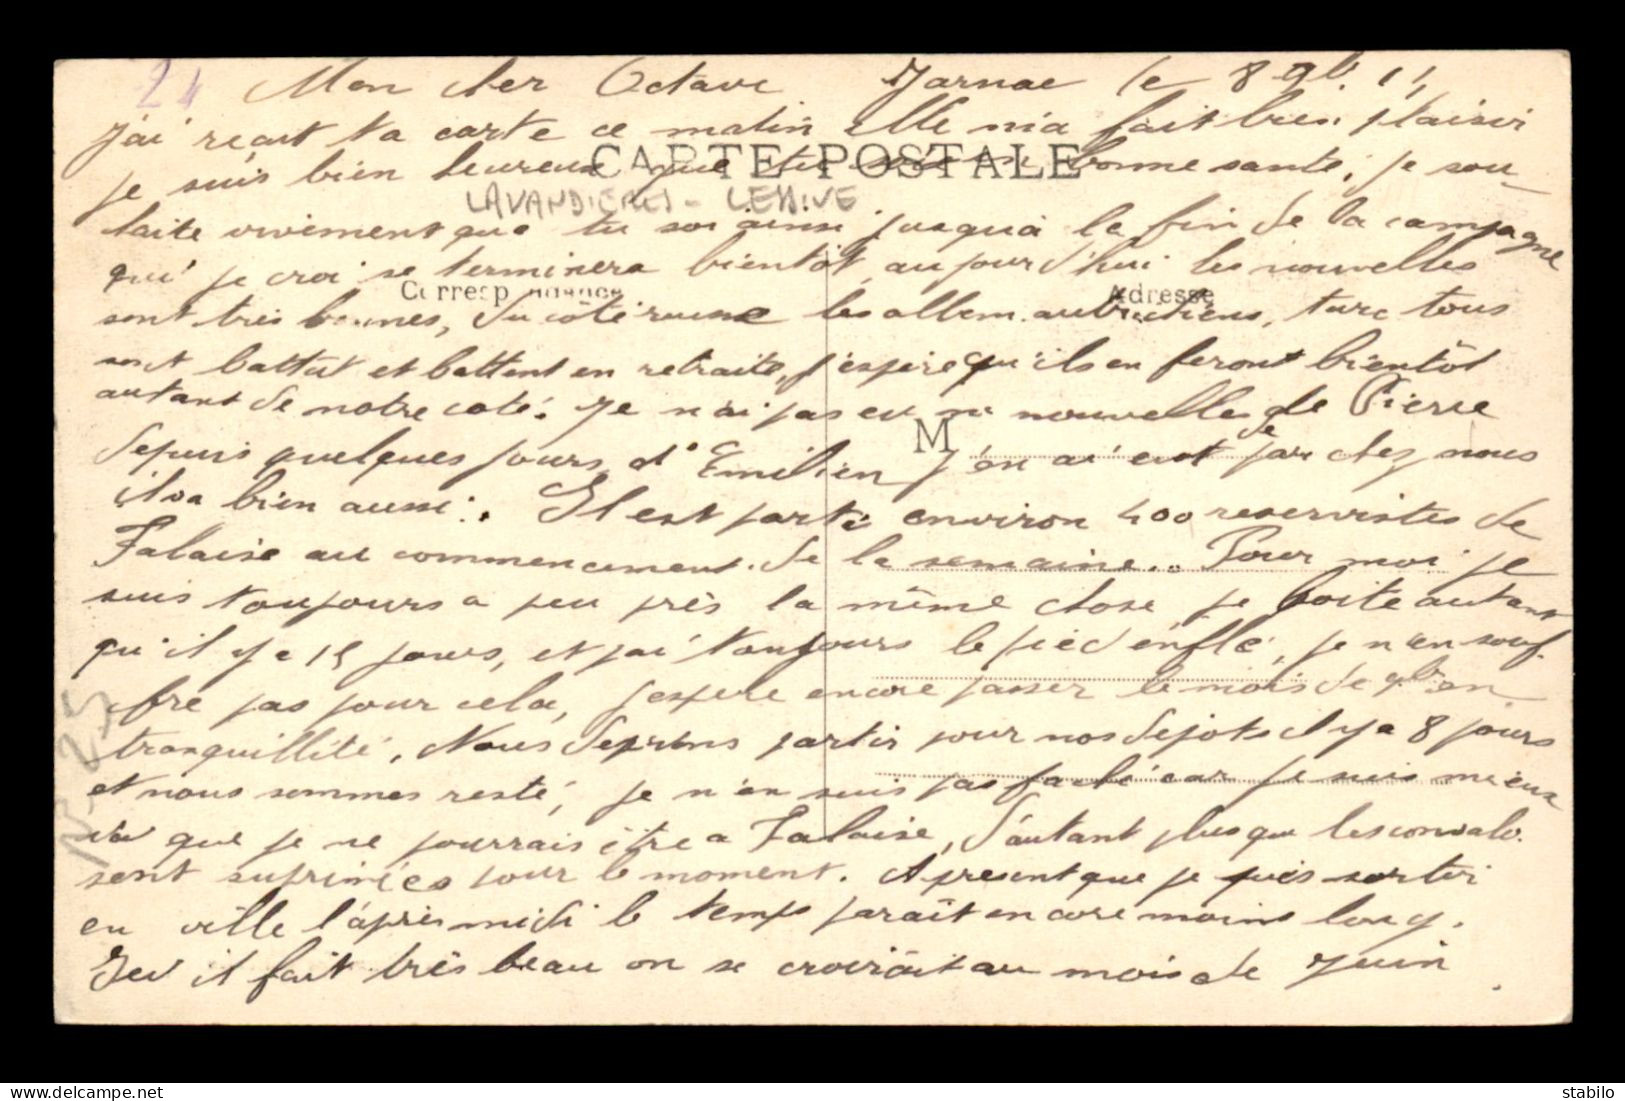 24 Mon cher Octave Jarnac le 8 9b.
J'ai reçut ta carte ce matin elle m'a fait bien plaisir
CARTE POSTALE
je suis bien heureux que tu bonne santé, je sou-
LAVANDIERES - LESSIVE
haite vivement que tu soi ainsi jusqua la fin de la campagne
qui je croi se terminera bientôt, aujourd'hui les nouvelles
Correspondance Adresse
sont très bonnes, du côté russe les allem. autrichiens, turc tous
sont battut et battent en retraite, j'espère qu'ils en feront bientôt
autant de notre coté. Je n'ai pas eu nouvelles de Pierre
M
depuis quelques jours, d'Emilien j'en ai eut de par chez nous
il va bien aussi. Il est parti environ 400 reservistes de
Falaise au commencement de la semaine.. Pour moi je
suis toujours a peu près la même chose je boite autant
qu'il y a 15 jours, et j'ai toujours le pied enflé, je n'en souf-
fre pas pour cela, j'espère encore passer le mois de 9bre en
tranquillité. Nous deprims partir pour nos depots il y a 8 jours
et nous sommes resté, je n'en suis pas faché car je suis mieux
ici que je ne pourrais être a Falaise, d'autant plus que les convalo.
sont suprimées pour le moment. A present que je puis sortir
en ville l'après midi le temps parait encore moins long.
Ici il fait très beau on se croirait au mois de Juin.